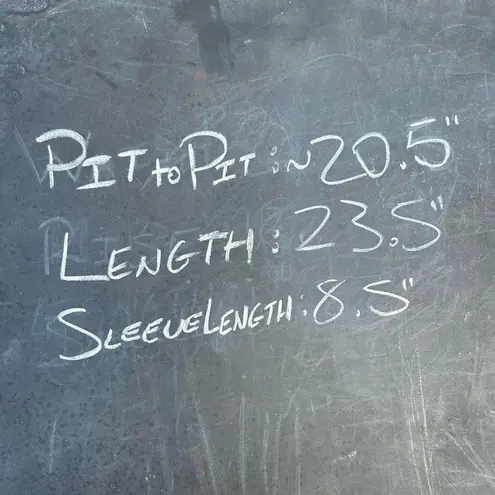 PIT to PIT : ~ 20.5"
LENGTH : 23.5"
SLEEVE LENGTH : 8.5"